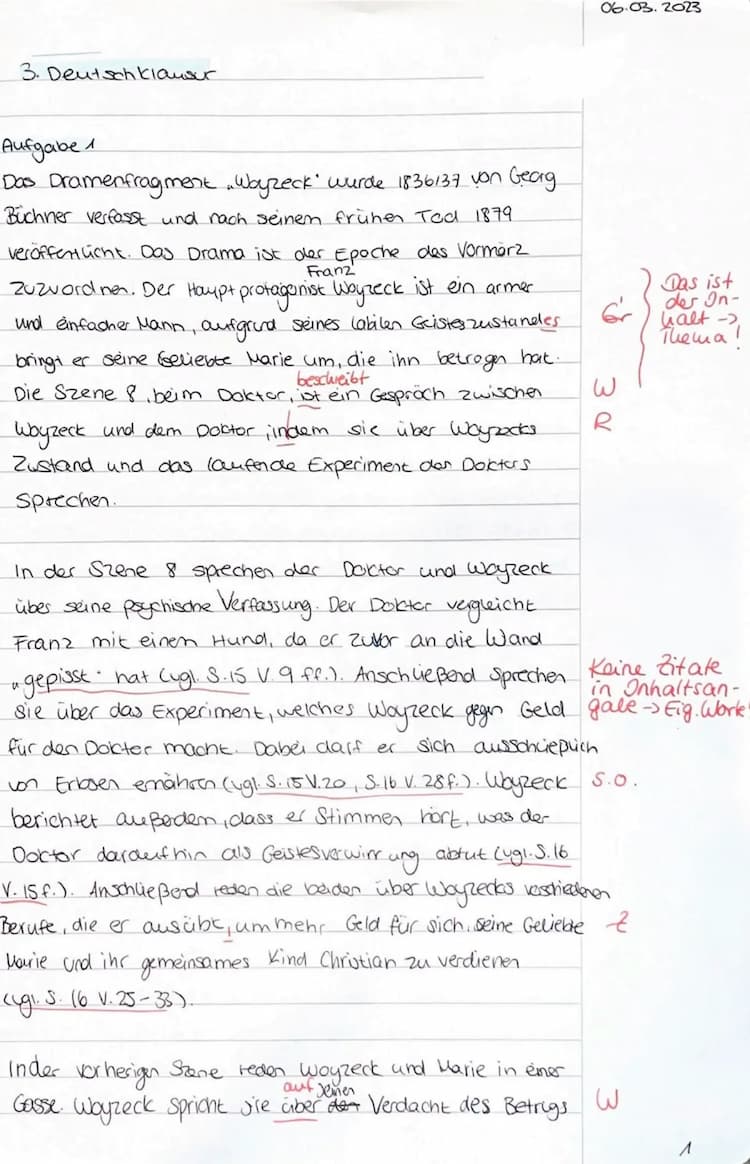 06.03.2023
3. Deutschklausur
Aufgabe 1
Das Dramenfragment „Woyzeck" wurde 1836/37 von Georg
Büchner verfasst und nach seinem frühen Tod 1879
veröffentlicht. Das Drama ist der Epoche des Vormärz
Franz
zuzuordnen. Der Hauptprotagonist Woyzeck ist ein armer
und einfacher Mann, aufgrund seines labilen Geisteszustandes
bringt er seine Geliebte Marie um, die ihn betrogen hat.
Gr
Das ist
der In-
halt ->
Thema!
beschreibt
Die Szene 8, beim Doktor, ist ein Gespräch zwischen
W
Woyzeck und dem Doktor, indem sie über Woyzecks
R
Zustand und das laufende Experiment des Doktors
sprechen.
In der Szene 8 sprechen der Doktor und Woyzeck
über seine psychische Verfassung. Der Doktor vergleicht
Franz mit einem Hund, da er zuvor an die Wand
„gepisst" hat (vgl. S.15 V.9 ff.). Anschließend sprechen
sie über das Experiment, welches Woyzeck gegen Geld
für den Doktor macht. Dabei darf er sich ausschließlich
Keine Zitate
in Inhaltsan-
gabe -> Eig. Worte
von Erbsen ernähren (vgl. S.15 V.20, S.16 V.28f.). Woyzeck
s.o.
berichtet außerdem, dass er Stimmen hört, was der
Doktor daraufhin als Geistesverwirrung abtut (vgl. S.16
V.15f.). Anschließend reden die beiden über Woyzecks verschiedenen
Berufe, die er ausübt, um mehr Geld für sich, seine Geliebte
Z
Marie und ihr gemeinsames Kind Christian zu verdienen
(vgl. S.16 V.25-33).
In der vorherigen Szene reden Woyzeck und Marie in einer
auf seinen
Gasse. Woyzeck spricht sie über den Verdacht des Betrugs
W
1